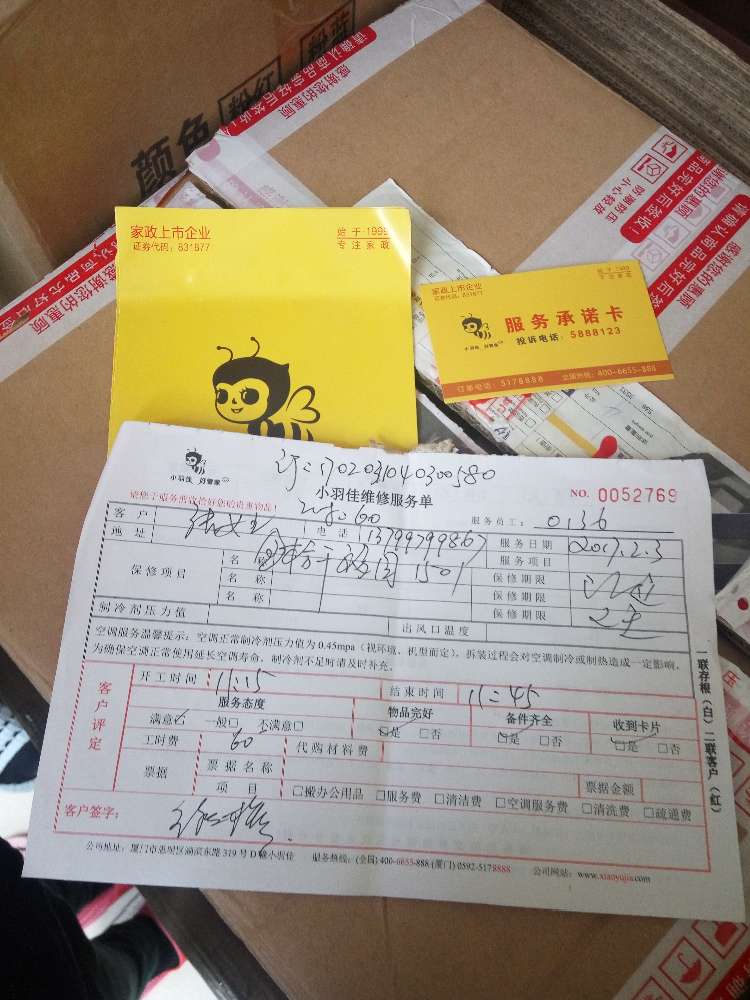 颜色 粉红 粉蓝
请确认商品完好后签收!
感谢您的惠顾
小心轻放
家政上市企业
证券代码:831877
始于1999
专注家政
家政上市企业
证券代码:831877
始于1999
专注家政
服务承诺卡
小羽佳 好管家
投诉电话:5888123
订单电话:5178888 全国热线:400-6655-888
小羽佳 好管家
1702031040300580
小羽佳维修服务单
NO. 0052769
服务员工: 0136
客户
电话 13799799867
服务日期 2017.2.3
地址
服务项目
保修项目
名称
1501
保修期限
名称
保修期限
名称
保修期限
制冷剂压力值
出风口温度
空调服务温馨提示:空调正常制冷剂压力值为0.45mpa(视环境、机型而定),拆装过程会对空调制冷或制热造成一定影响,
为确保空调正常使用延长空调寿命,制冷剂不足时请及时补充。
客户评定
开工时间 11:15
结束时间 11:45
服务态度
物品完好
备件齐全
收到卡片
满意☑ 一般□ 不满意□
☑是 □否
☑是 □否
☑是 □否
工时费 60
代购材料费
票据
票据名称
票据金额
项目
□搬办公用品 □服务费 □清洁费 □空调服务费 □清洗费 □疏通费
客户签字:
一联存根(白)二联客户(红)
公司地址:厦门市思明区湖滨东路319号D幢小羽佳 服务热线:(全国)400-6655-888 (厦门)0592-5178888 公司网站:www.xiaoyujia.com